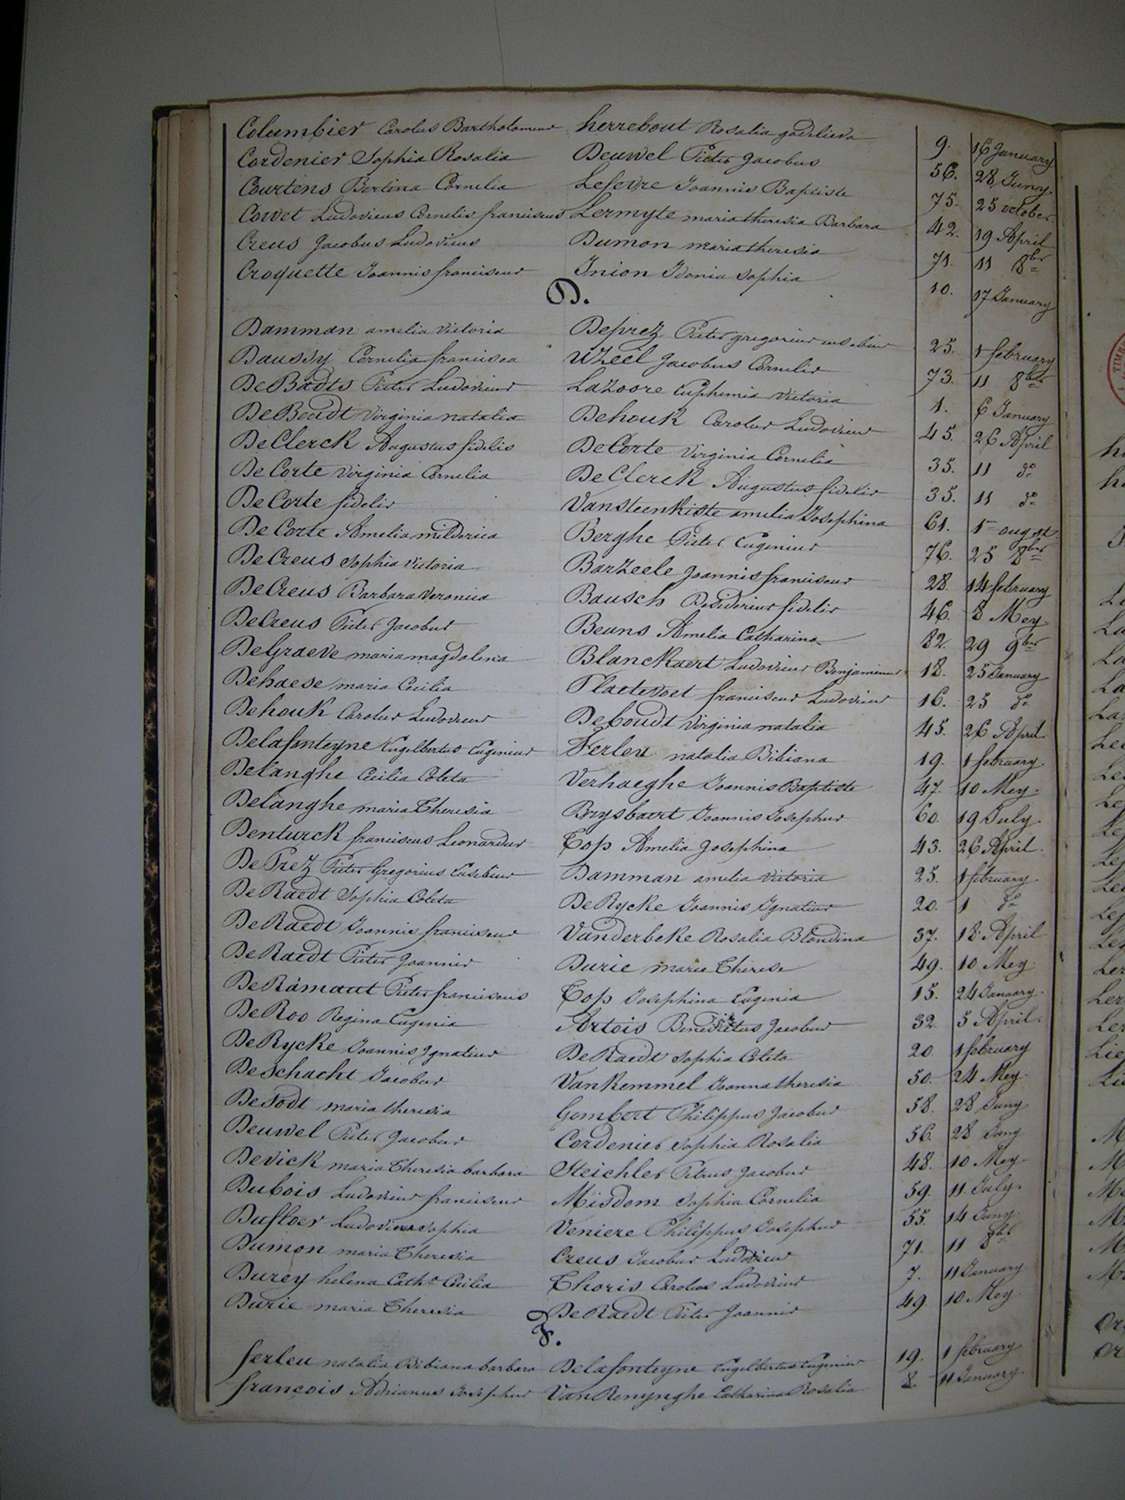 Columbier Carolus Bartholomeus herrebout Rosalia godelieva 9. 16 January
Cordenier Sophia Rosalia Deuwel Pieter Jacobus 56. 28 Juny.
Courtens Bertina Cornelia Lefevre Joannis Baptiste 75. 25 october
Cowet Ludovicus Cornelis franciscus Lermyte maria theresia Barbara 42. 19 April
Creus Jacobus Ludovicus Dumon maria theresia 71. 11 8ber
Croquette Joannis franciscus Inion Idonia Sophia 10. 17 January
D.
Damman amelia Victoria Deprez Pieter gregorius eusebius 25. 1 february
Daussy Cornelia francisca Uzeel Jacobus Cornelis 73. 11 8ber
DeBadts Pieter Ludovicus Lazoore Euphemia Victoria 1. 6 January
DeBoudt Virginia natalia Dehouk Carolus Ludovicus 45. 26 April
DeClerck Augustus fidelis DeCorte Virginia Cornelia 35. 11 do
DeCorte Virginia Cornelia DeClerck Augustus fidelis 35. 11 do
DeCorte fidelis Vansteenkiste amelia Josephina 61. 1 august
DeCorte Amelia mildonia Berghe Pieter Eugenius 76. 25 8ber
DeCreus Sophia Victoria Barzeele Joannis franciscus 28 14 february
DeCreus Barbara Veronica Bausch Desiderius fidelis 46. 8 Mey
DeCreus Pieter Jacobus Beuns Amelia Catharina 82. 29 9ber
DeGraeve maria magdalena Blanckaert Ludovicus Benjaminus 18. 25 January
Dehaese maria Cecilia Plaetevoet franciscus Ludovicus 16. 25 do
Dehouk Carolus Ludovicus DeBoudt Virginia natalia 45. 26 April
Delafonteyne Engelbertus Eugenius Ferleu natalia Bibiana 19. 1 february
Delanghe Cecilia Coleta Verhaeghe Joannis Baptiste 47. 10 Mey.
Delanghe maria Theresia Bruysbaert Joannis Josephus 60 19 July
Denturck franciscus Leonardus Top Amelia Josephina 43. 26 April.
DePrez Pieter Gregorius Eusebius Damman amelia Victoria 25. 1 february
DeRaedt Sophia Coleta DeRycke Joannis Ignatius 20. 1 do
DeRaedt Joannis franciscus Vanderbeke Rosalia Blondina 37. 18 April
DeRaedt Pieter Joannis Durie marie Therese 49. 10 Mey
DeRamaut Pieter franciscus Top Josephina Eugenia 15. 24 January.
DeRoo Regina Eugenia Artois Benedictus Jacobus 32. 5 April
DeRycke Joannis Ignatius DeRaedt Sophia Coleta 20 1 february
Deschacht Jacobus VanKemmel Joanna theresia 50. 24 Mey.
Desodt maria theresia Gombert Philippus Jacobus 58. 28 Juny
Deuwel Pieter Jacobus Cordenier Sophia Rosalia 56. 28 Juny
Devick maria Theresia barbara Steichler Petrus Jacobus 48. 10 Mey.
Dubois Ludovicus franciscus Misdom Sophia Cornelia 59. 11 July.
Dufloer Ludovica Sophia Veniere Philippus Josephus 55. 14 Juny
Dumon maria Theresia Creus Jacobus Ludovicus 71. 11 8ber
Durey helena Catha Cecilia Thoris Carolus Ludovicus 7. 11 January
Durie maria Theresia DeRaedt Pieter Joannis 49 10 Mey
F.
ferleu natalia Bibiana barbara Delafonteyne Engelbertus Eugenius 19. 1 february
francois Adrianus Josephus VanRenynghe Catharina Rosalia 8 11 January.